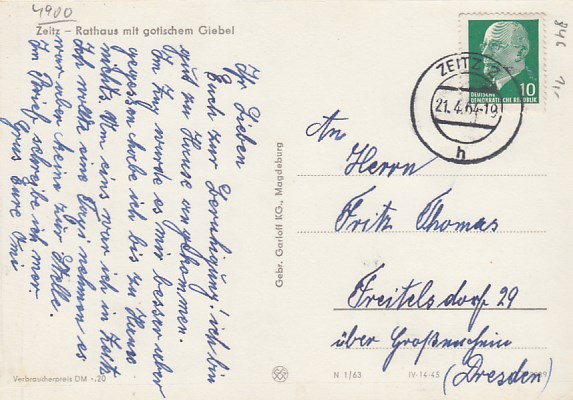 4900
Zeitz – Rathaus mit gotischem Giebel
Ihr Lieben
Euch zur Beruhigung! ich bin
gut zu Hause angekommen.
Im Zug wurde es mir besser aber
gegessen habe ich bis zu Haus
nichts. Um eins war ich in Zeitz
Ich wollte eine Taxi nehmen es
war aber keine zur Stelle.
Im Brief schreibe ich mehr
Gruss Eure Omi
Gebr. Garloff KG., Magdeburg
ZEITZ
21.4.64-19
h
10
DEUTSCHE
DEMOKRATISCHE REPUBLIK
An
Herrn
Fritz Thomas
Freitelsdorf 29
über Großenhain
(Dresden)
Verbraucherpreis DM -,20
N 1/63
IV-14-45